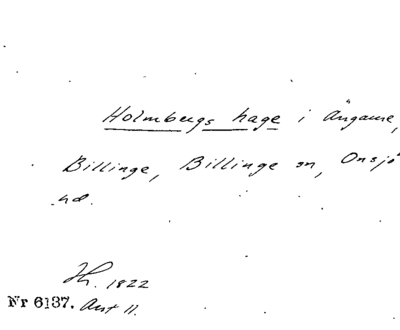 Holmbergs hage i Ängarne,
Billinge, Billinge sn, Onsjö
hd.
Th. 1822
Nr 6137. Ant 11.